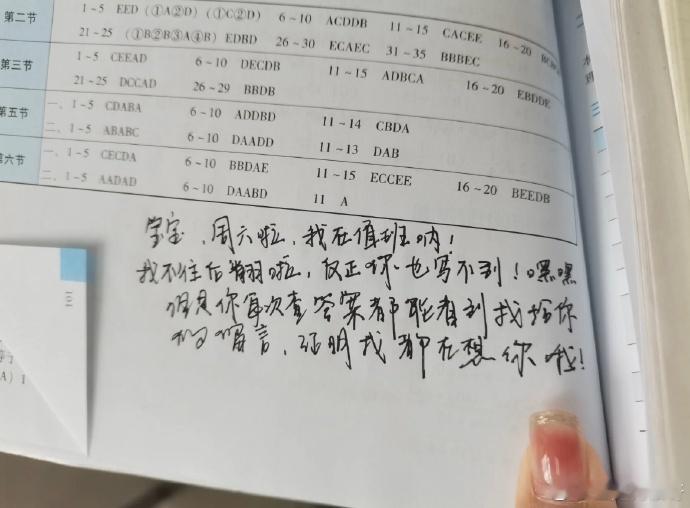 第二节 1~5 EED (①A②D) (①C②D) 6~10 ACDDB 11~15 CACEE 16~20
21~25 (①B②B③A④B) EDBD 26~30 ECAEC 31~35 BBBEC
第三节 1~5 CEEAD 6~10 DECDB 11~15 ADBCA 16~20 EBDDE
21~25 DCCAD 26~29 BBDB
第五节 一、1~5 CDABA 6~10 ADDBD 11~14 CBDA
二、1~5 ABABC 6~10 DAADD 11~13 DAB
第六节 一、1~5 CECDA 6~10 BBDAE 11~15 ECCEE 16~20 BEEDB
二、1~5 AADAD 6~10 DAABD 11 A
宝,周六啦,我在值班呐!
我不往后翻啦,反正你也写不到!嘿嘿
但是你每次查答案都能看到我给你
的留言,证明我都在想你哦!
A) 1